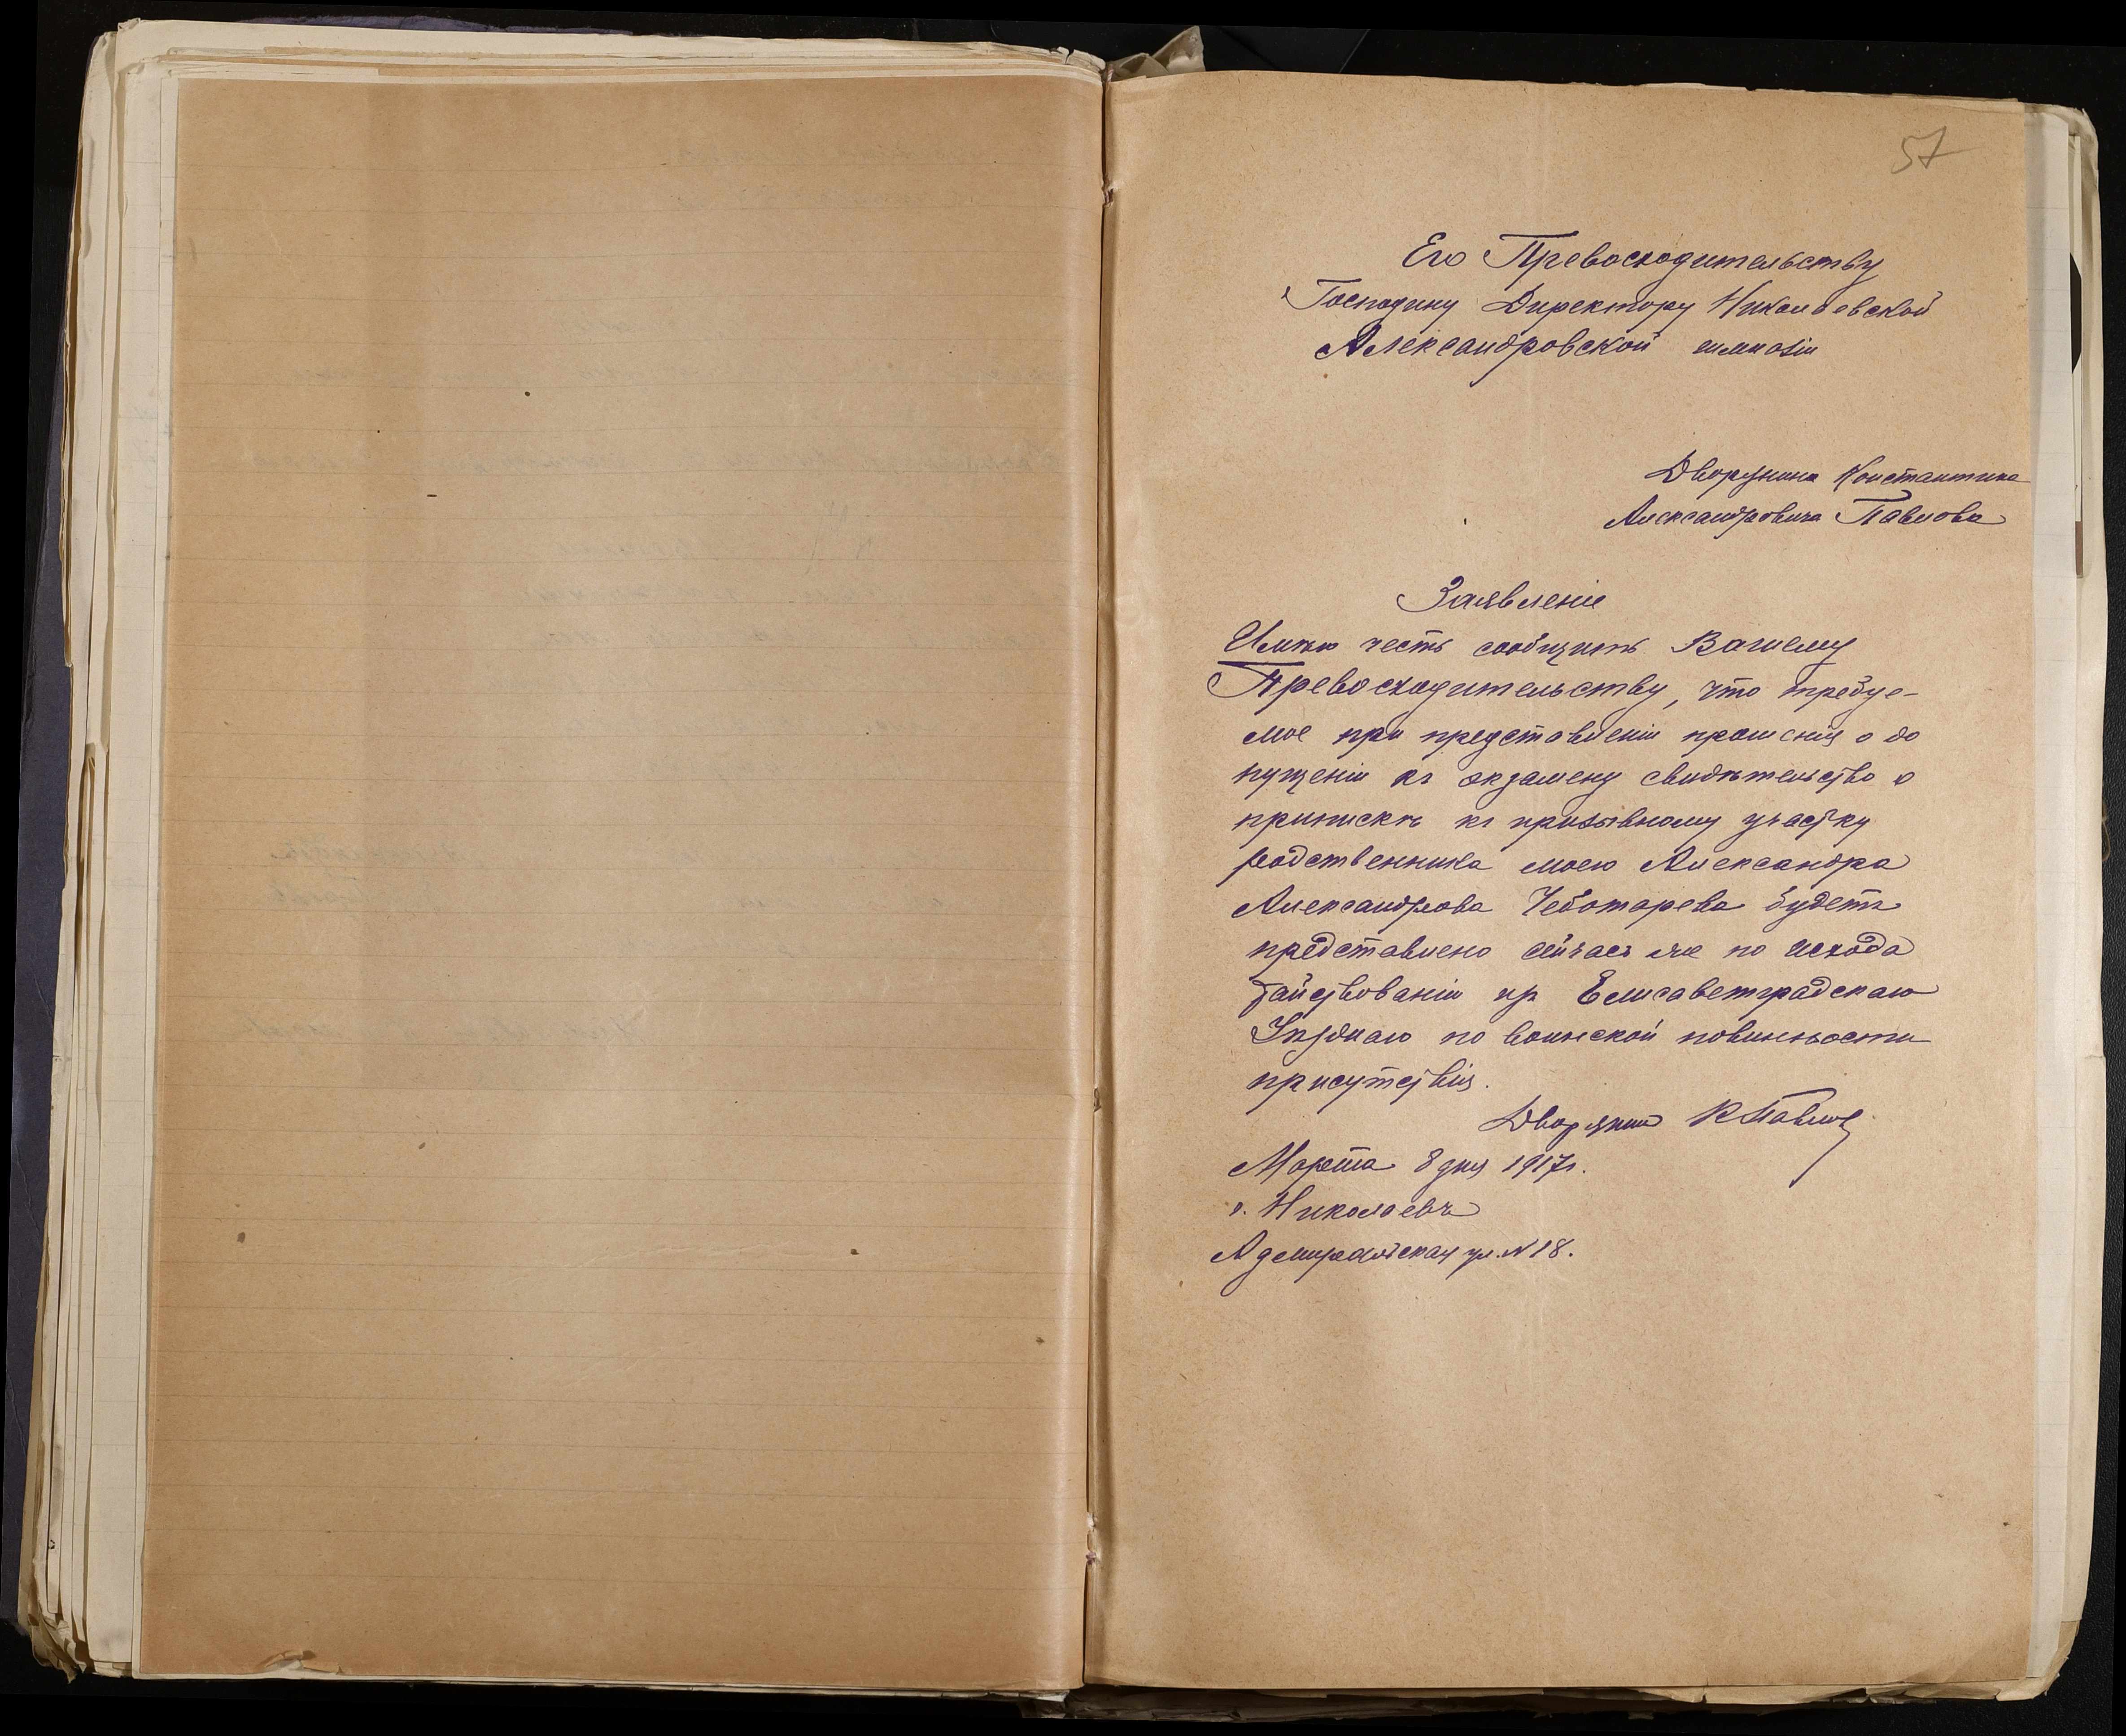 57
Его Превосходительству
Господину Директору Николаевской
Александровской гимназіи
Дворянина Константина
Александровича Павлова
Заявленіе
Имѣю честь сообщить Вашему
Превосходительству, что требуе-
мое при представленіи прошенія о до
пущеніи къ экзамену свидѣтельство о
припискѣ къ призывному участку
родственника моего Александра
Александрова Чеботарева будетъ
представлено сейчасъ же по исхода
тайствованіи изъ Елисаветградскаго
Уѣзднаго по воинской повинности
присутствія.
Дворянинъ К Павловъ
Марта 8 дня 1917 г.
г. Николаевъ
Адмиральская ул. № 18.